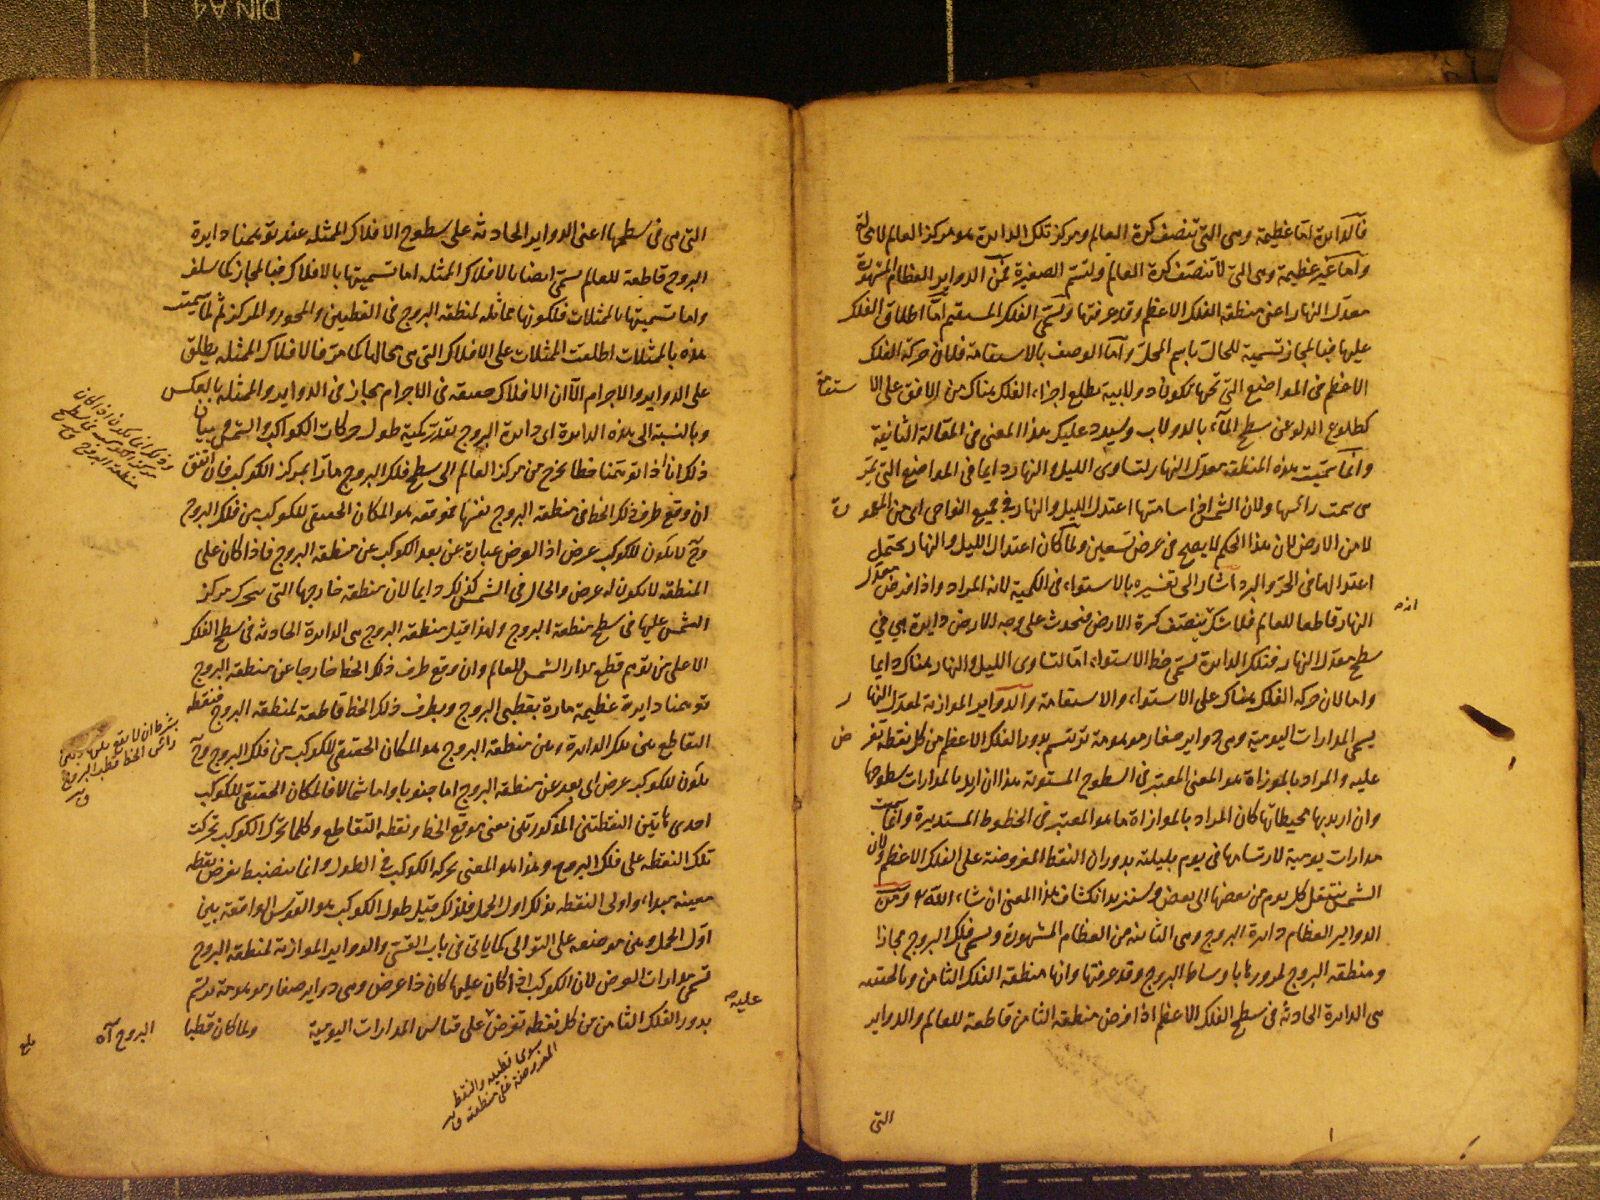 فالدايرة اما عظيمة وهى التى تنصف كرة العالم ومركز تلك الدايرة هو مركز العالم لا محالة
واما غير عظيمة وهى التى لا تنصف كرة العالم ولتسم الصغيرة فمن الدواير العظام المشهورة
معدل النهار اعنى منطقة الفلك الاعظم وقد عرفتها وتسمى الفلك المستقيم اما اطلاق الفلك
عليها فبالمجاز تسمية للحال باسم المحل واما الوصف بالاستقامة فلان حركة الفلك
الاعظم فى المواضع التى تحتها تكون دولابية يطلع اجزاء الفلك هناك من الافق على الاستقامة
كطلوع الدلو عن سطح الماء بالدولاب وسيرد عليك هذا المعنى فى المقالة الثانية
وانما سميت هذه المنطقة معدل النهار لتساوى الليل والنهار دايما فى المواضع التى تمر
هى بسمت رائسها ولان الشمس اذا سامتها اعتدل الليل والنهار فى جميع النواحى اى من المعمورة
لا من الارض لان هذا الحكم لا يصح فى عرض تسعين ولما كان اعتدال الليل والنهار يحتمل
اعتدالهما فى الحر والبرد اشار الى تفسيره بالاستواء فى الكمية لانه المراد واذا فرض معدل
النهار قاطعا للعالم فلا شك انه ينصف كرة الارض فتحدث على وجه الارض دايرة هى فى
سطح معدل النهار فتلك الدايرة تسمى خط الاستواء اما لتساوى الليل والنهار هناك دايما
واما لان حركة الفلك هناك على الاستواء والاستقامة والدواير الموازية لمعدل النهار
يسمى المدارات اليومية وهى دواير صغار موهومة ترتسم بدور الفلك الاعظم من كل نقطة تفرض
عليه والمراد بالموازاة هو المعنى المعتبر فى السطوح المستوية هذا ان اريد بالمدارات سطوحها
وان اريد بها محيطاتها كان المراد بالموازاة ما هو المعتبر فى الخطوط المستديرة وانما سميت
مدارات يومية لارتسامها فى يوم بليلته بدوران النقط المفروضة على الفلك الاعظم ولان
الشمس تنتقل كل يوم من بعضها الى بعض وسنزيد انكشاف هذا المعنى ان شاء الله تع ومن
الدواير العظام دايرة البروج وهى الثانية من العظام المشهورة وتسمى فلك البروج مجازا
ومنطقة البروج لمرورها باوساط البروج وقد عرفتها وانها منطقة الفلك الثامن وبالحقيقة
هى الدايرة الحادثة فى سطح الفلك الاعظم اذا فرض منطقة الثامن قاطعة للعالم والدواير
التى
التى هى فى سطحها اعنى الدواير الحادثة على سطوح الافلاك الممثلة عند توهمنا دايرة
البروج قاطعة للعالم تسمى ايضا بالافلاك الممثلة اما تسميتها بالافلاك فبالمجاز كما سلف
واما تسميتها بالممثلات فلكونها مماثلة لمنطقة البروج فى القطبين والمحور والمركز ثم لما سميت
هذه بالممثلات اطلقت الممثلات على الافلاك التى هى محالها كما مر فالافلاك الممثلة يطلق
على الدواير والاجرام الا ان الافلاك حقيقة فى الاجرام مجاز فى الدواير والممثلة بالعكس
وبالنسبة الى هذه الدايرة اى دايرة البروج يقدر كمية طول حركات الكواكب والشمس بيان
ذلك انا اذا توهمنا خطا يخرج من مركز العالم الى سطح فلك البروج مارا بمركز الكوكب فان اتفق
ان وقع طرف ذلك الخط فى منطقة البروج نفسها فموقعه هو المكان الحقيقى للكوكب من فلك البروج
وح لا يكون للكوكب عرض اذ العرض عبارة عن بعد الكوكب عن منطقة البروج فاذا كان على
المنطقة لا يكون له عرض والحال فى الشمس كذلك دايما لان منطقة خارجها التى يتحرك مركز
الشمس عليها فى سطح منطقة البروج ولهذا قيل منطقة البروج هى الدايرة الحادثة فى سطح الفلك
الاعلى من توهم قطع مدار الشمس للعالم وان وقع طرف ذلك الخط خارجا عن منطقة البروج
توهمنا دايرة عظيمة مارة بقطبى البروج وبطرف ذلك الخط قاطعة لمنطقة البروج فنقطة
التقاطع بين تلك الدايرة وبين منطقة البروج هو المكان الحقيقى للكوكب من فلك البروج وح
يكون للكوكب عرض اى بعد عن منطقة البروج اما جنوبا واما شمالا فالمكان الحقيقى للكوكب
احدى هاتين النقطتين المذكورتين اعنى موقع الخط ونقطة التقاطع وكلما تحرك الكوكب تحركت
تلك النقطة على فلك البروج وهذا هو المعنى بحركة الكوكب فى الطول وانما ينضبط بفرض نقطة
معينة مبدا واولى النقطة بذلك اول الحمل فلذلك قيل طول الكوكب هو القوس الواقعة بين
اول الحمل وبين موضعه على التوالى كما ياتى فى باب القسى والدواير الموازية لمنطقة البروج
تسمى مدارات العرض لان الكوكب اذا كان عليها كان ذا عرض وهى دواير صغار موهومة ترتسم
بدور الفلك الثامن من كل نقطة تفرض عليه على قياس المدارات اليومية ولما كان قطبا البروج آه
بشرط ان لا يقع
سوى قطبيه والنقط
المفروضة على منطقته